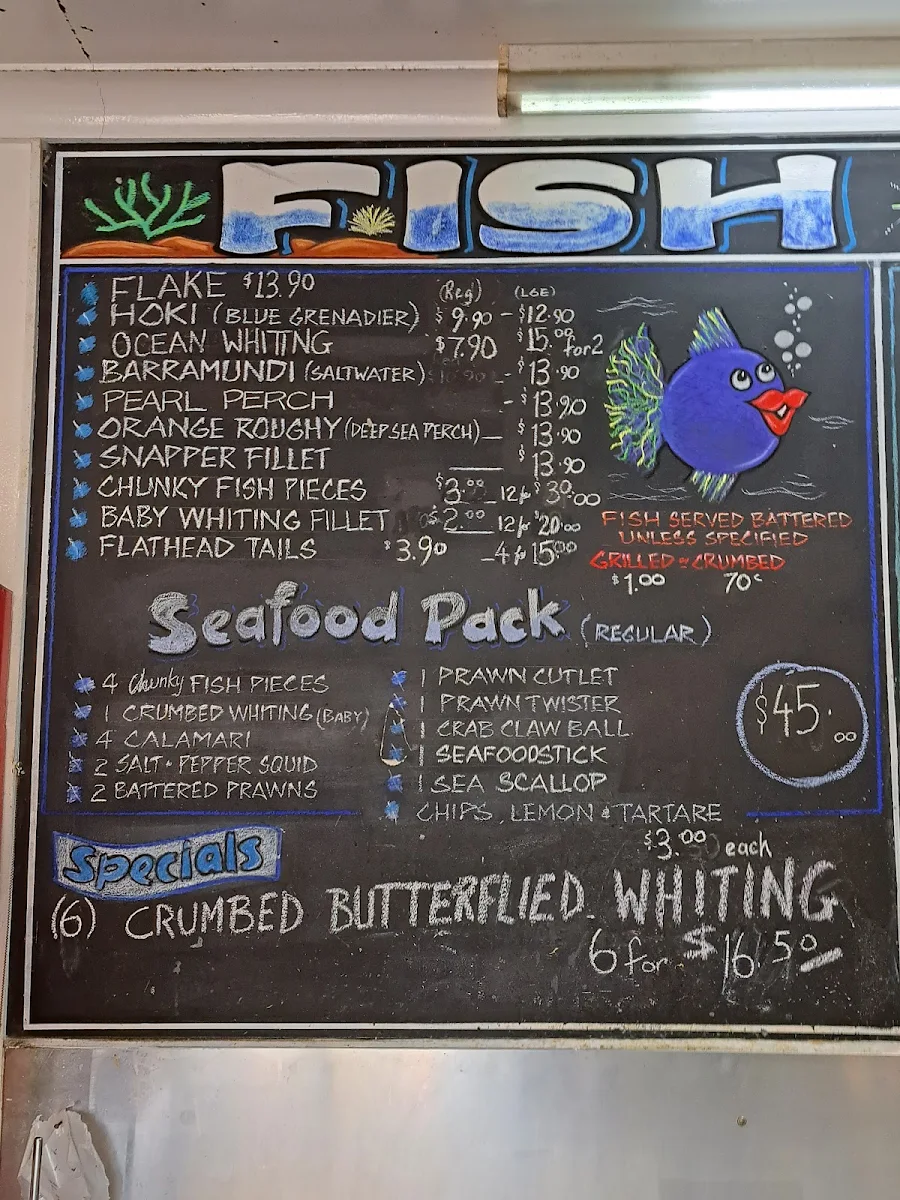 FISH
FLAKE $13.90
(Reg) (LGE)
HOKI (BLUE GRENADIER) $9.90 - $12.90
OCEAN WHITING $7.90 $15.00 for 2
BARRAMUNDI (SALTWATER) - $13.90
PEARL PERCH - $13.90
ORANGE ROUGHY (DEEP SEA PERCH) - $13.90
SNAPPER FILLET $13.90
CHUNKY FISH PIECES $3.00 12 for $30.00
BABY WHITING FILLET $2.00 12 for $20.00
FLATHEAD TAILS $3.90 - 4 for 15.00
FISH SERVED BATTERED
UNLESS SPECIFIED
GRILLED or CRUMBED
$1.00 70c
Seafood Pack (REGULAR)
4 Chunky FISH PIECES
1 CRUMBED WHITING (BABY)
4 CALAMARI
2 SALT + PEPPER SQUID
2 BATTERED PRAWNS
1 PRAWN CUTLET
1 PRAWN TWISTER
1 CRAB CLAW BALL
1 SEAFOODSTICK
1 SEA SCALLOP
CHIPS, LEMON & TARTARE
$45.00
Specials
$3.00 each
(6) CRUMBED BUTTERFLIED WHITING
6 for $16.50